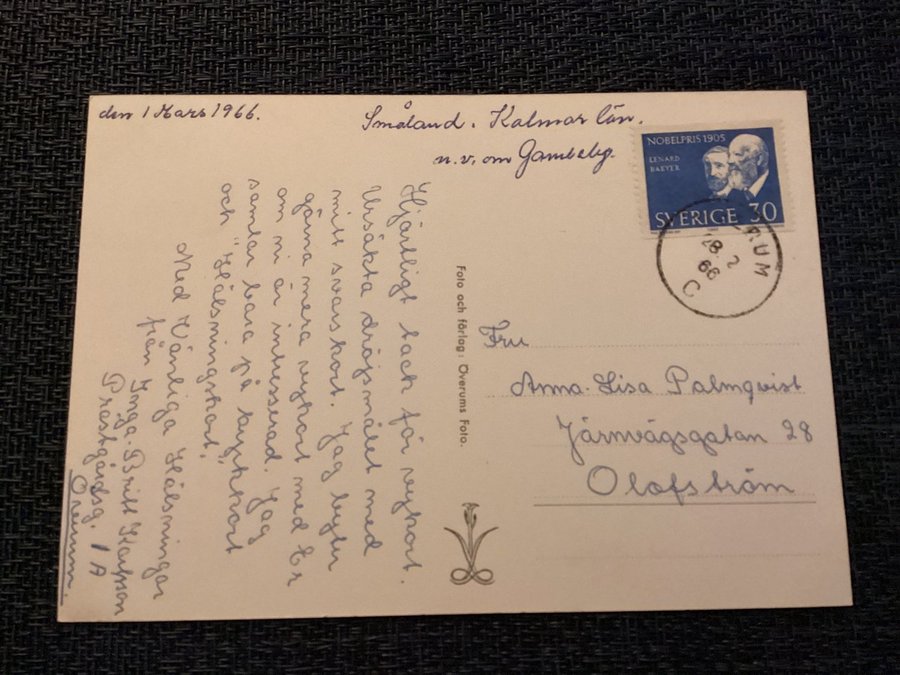 den 1 Mars 1966.
Småland. Kalmar län.
n.v. om Gamleby.
NOBELPRIS 1905
LENARD
BAEYER
SVERIGE 30
RUM
28 2
66
C
Hjärtligt tack för vykort.
Ursäkta dröjsmålet med
mitt svarskort. Jag byter
gärna mera vykort med Er
om ni är intresserad. Jag
samlar bara på kyrkkort
och "Hälsningskort".
Med Vänliga Hälsningar
från Inga-Britt Karlsson
Prästgårdsg. 1 A
Överum.
Foto och förlag: Överums Foto.
Fru
Anna-Lisa Palmqvist
Järnvägsgatan 28
Olofström